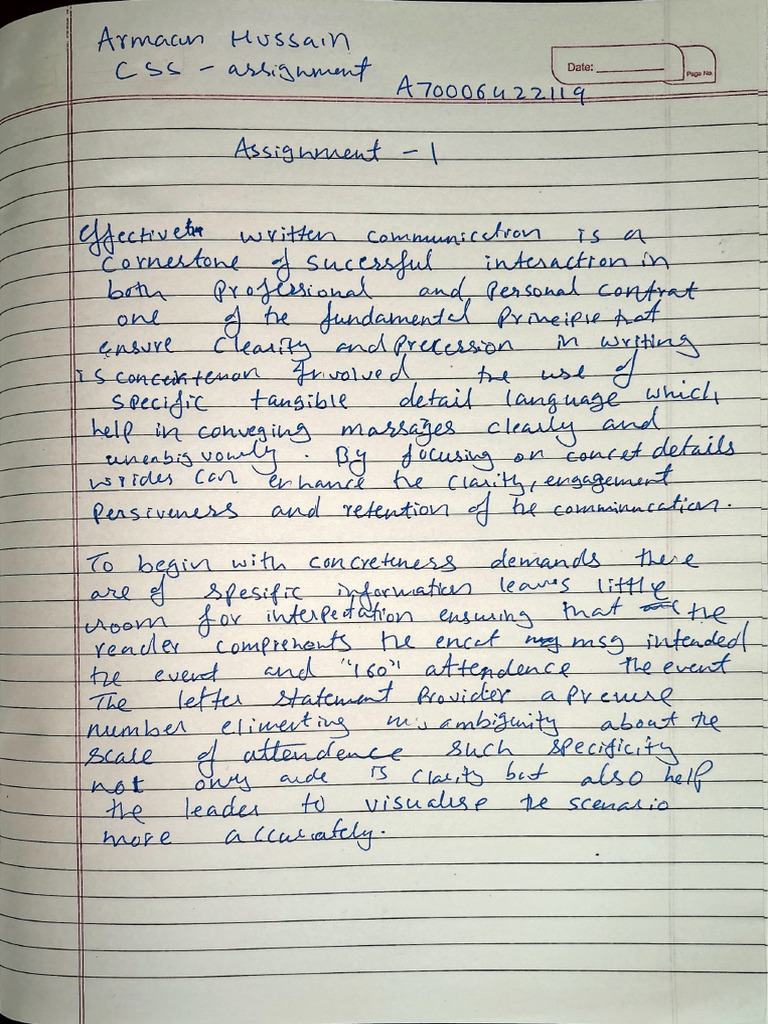 Armaan Hussain
CSS - assignment
Date:
Page No.
A70006422119
Assignment - 1
effective written communication is a
cornerstone of sucessful interaction in
both professional and personal contrat
one of the fundamental principle that
ensure clearity and precession in writing
is Involved the use of
specific tangible detail language which
help in conveging massages clearly and
unenbigvously. By focusing on concet details
wrides can enhance the clarity, engagement
persiveness and retention of the communication.
To begin with concreteness demands there
are of spesific information leaves little
room for interpetation ensuring that the
reader comprehents the encat msg intended
the event and "160" attendence the event
The letter statement provider a
number elimerting ambiguity about the
scale of attendence such specificity
not only aide is clarity but also help
the leader to visualise the scenario
more accurately.